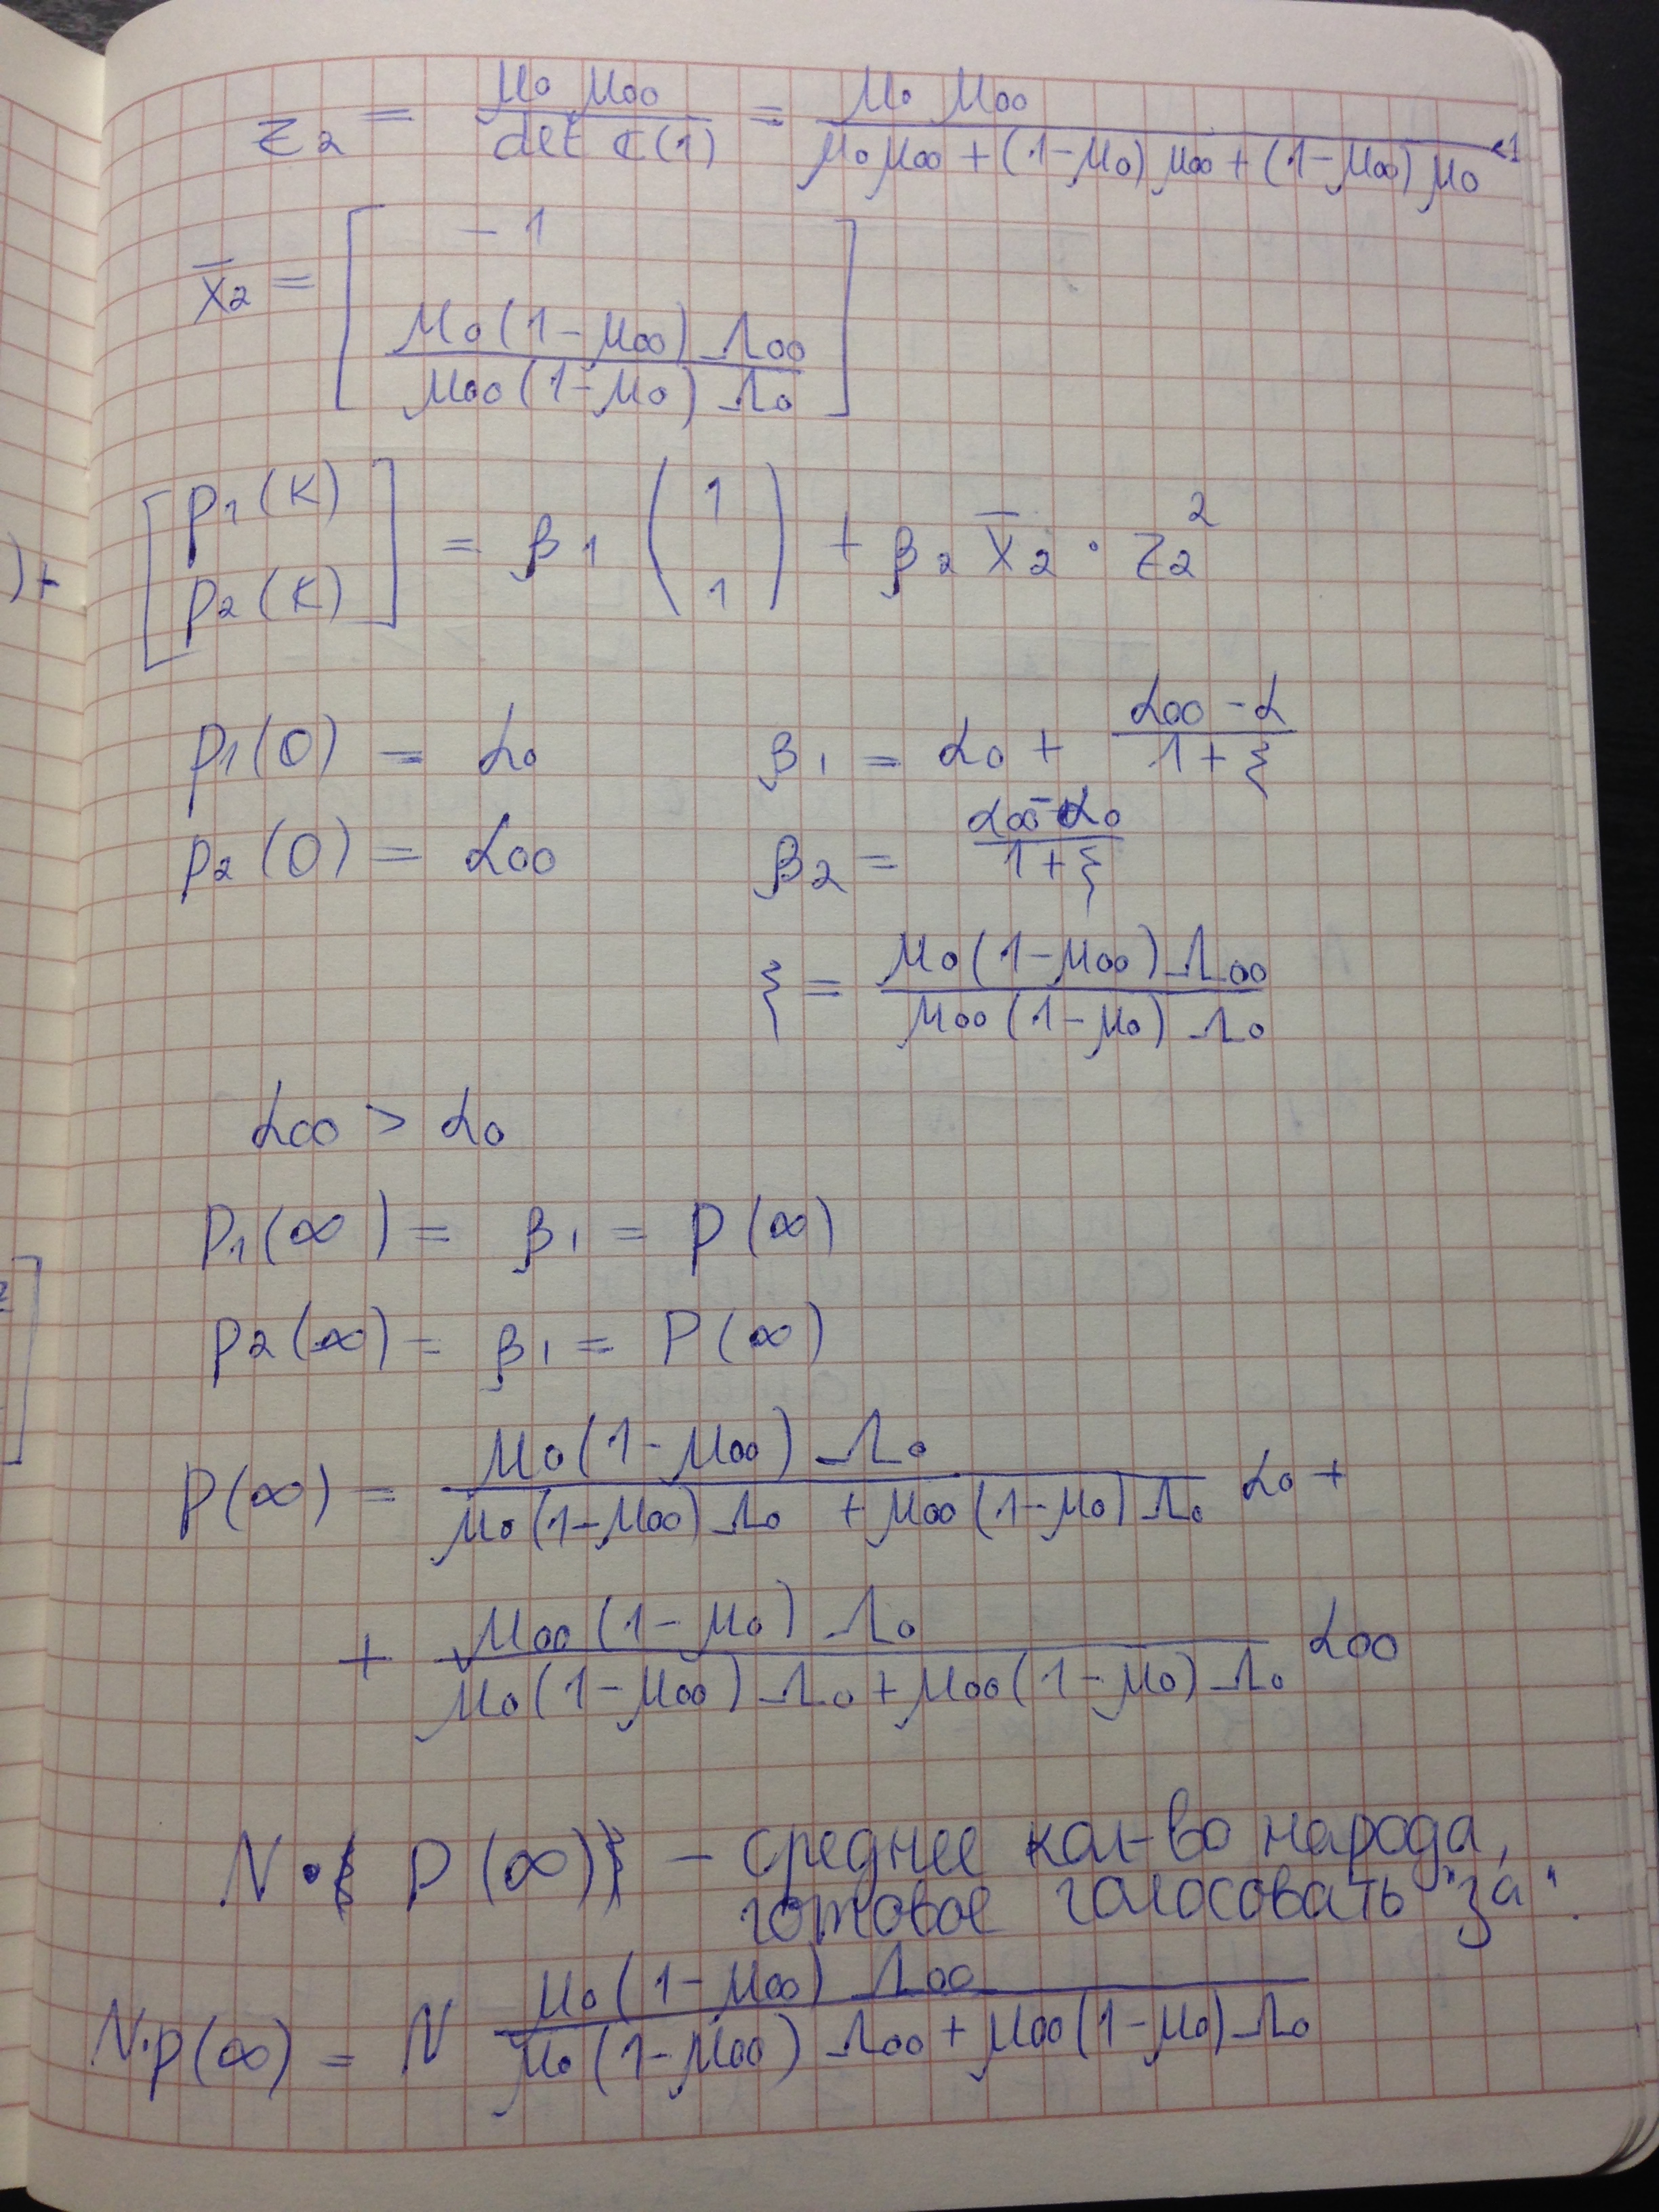 z₂ = μ₀ μ₀₀ / det C(1) = μ₀ μ₀₀ / (μ₀ μ₀₀ + (1-μ₀) μ₀₀ + (1-μ₀₀) μ₀) <1
x̄₂ = [ -1 ; μ₀(1-μ₀₀) Λ₀₀ / μ₀₀(1-μ₀) Λ₀ ]
[ p₁(k) ; p₂(k) ] = β₁ ( 1 ; 1 ) + β₂ x̄₂ · z₂²
p₁(0) = α₀ β₁ = α₀ + (α₀₀ - α) / (1+ξ)
p₂(0) = α₀₀ β₂ = (α₀₀ - α₀) / (1+ξ)
ξ = μ₀(1-μ₀₀) Λ₀₀ / μ₀₀(1-μ₀) Λ₀
α₀₀ > α₀
p₁(∞) = β₁ = p(∞)
p₂(∞) = β₁ = P(∞)
P(∞) = μ₀(1-μ₀₀) Λ₀ / (μ₀(1-μ₀₀) Λ₀ + μ₀₀(1-μ₀) Λ₀) α₀ +
+ μ₀₀(1-μ₀) Λ₀ / (μ₀(1-μ₀₀) Λ₀ + μ₀₀(1-μ₀) Λ₀) α₀₀
N·{ P(∞)} – среднее кол-во народа,
готовое голосовать "за".
N·p(∞) = N μ₀(1-μ₀₀) Λ₀₀ / (μ₀(1-μ₀₀) Λ₀₀ + μ₀₀(1-μ₀) Λ₀)